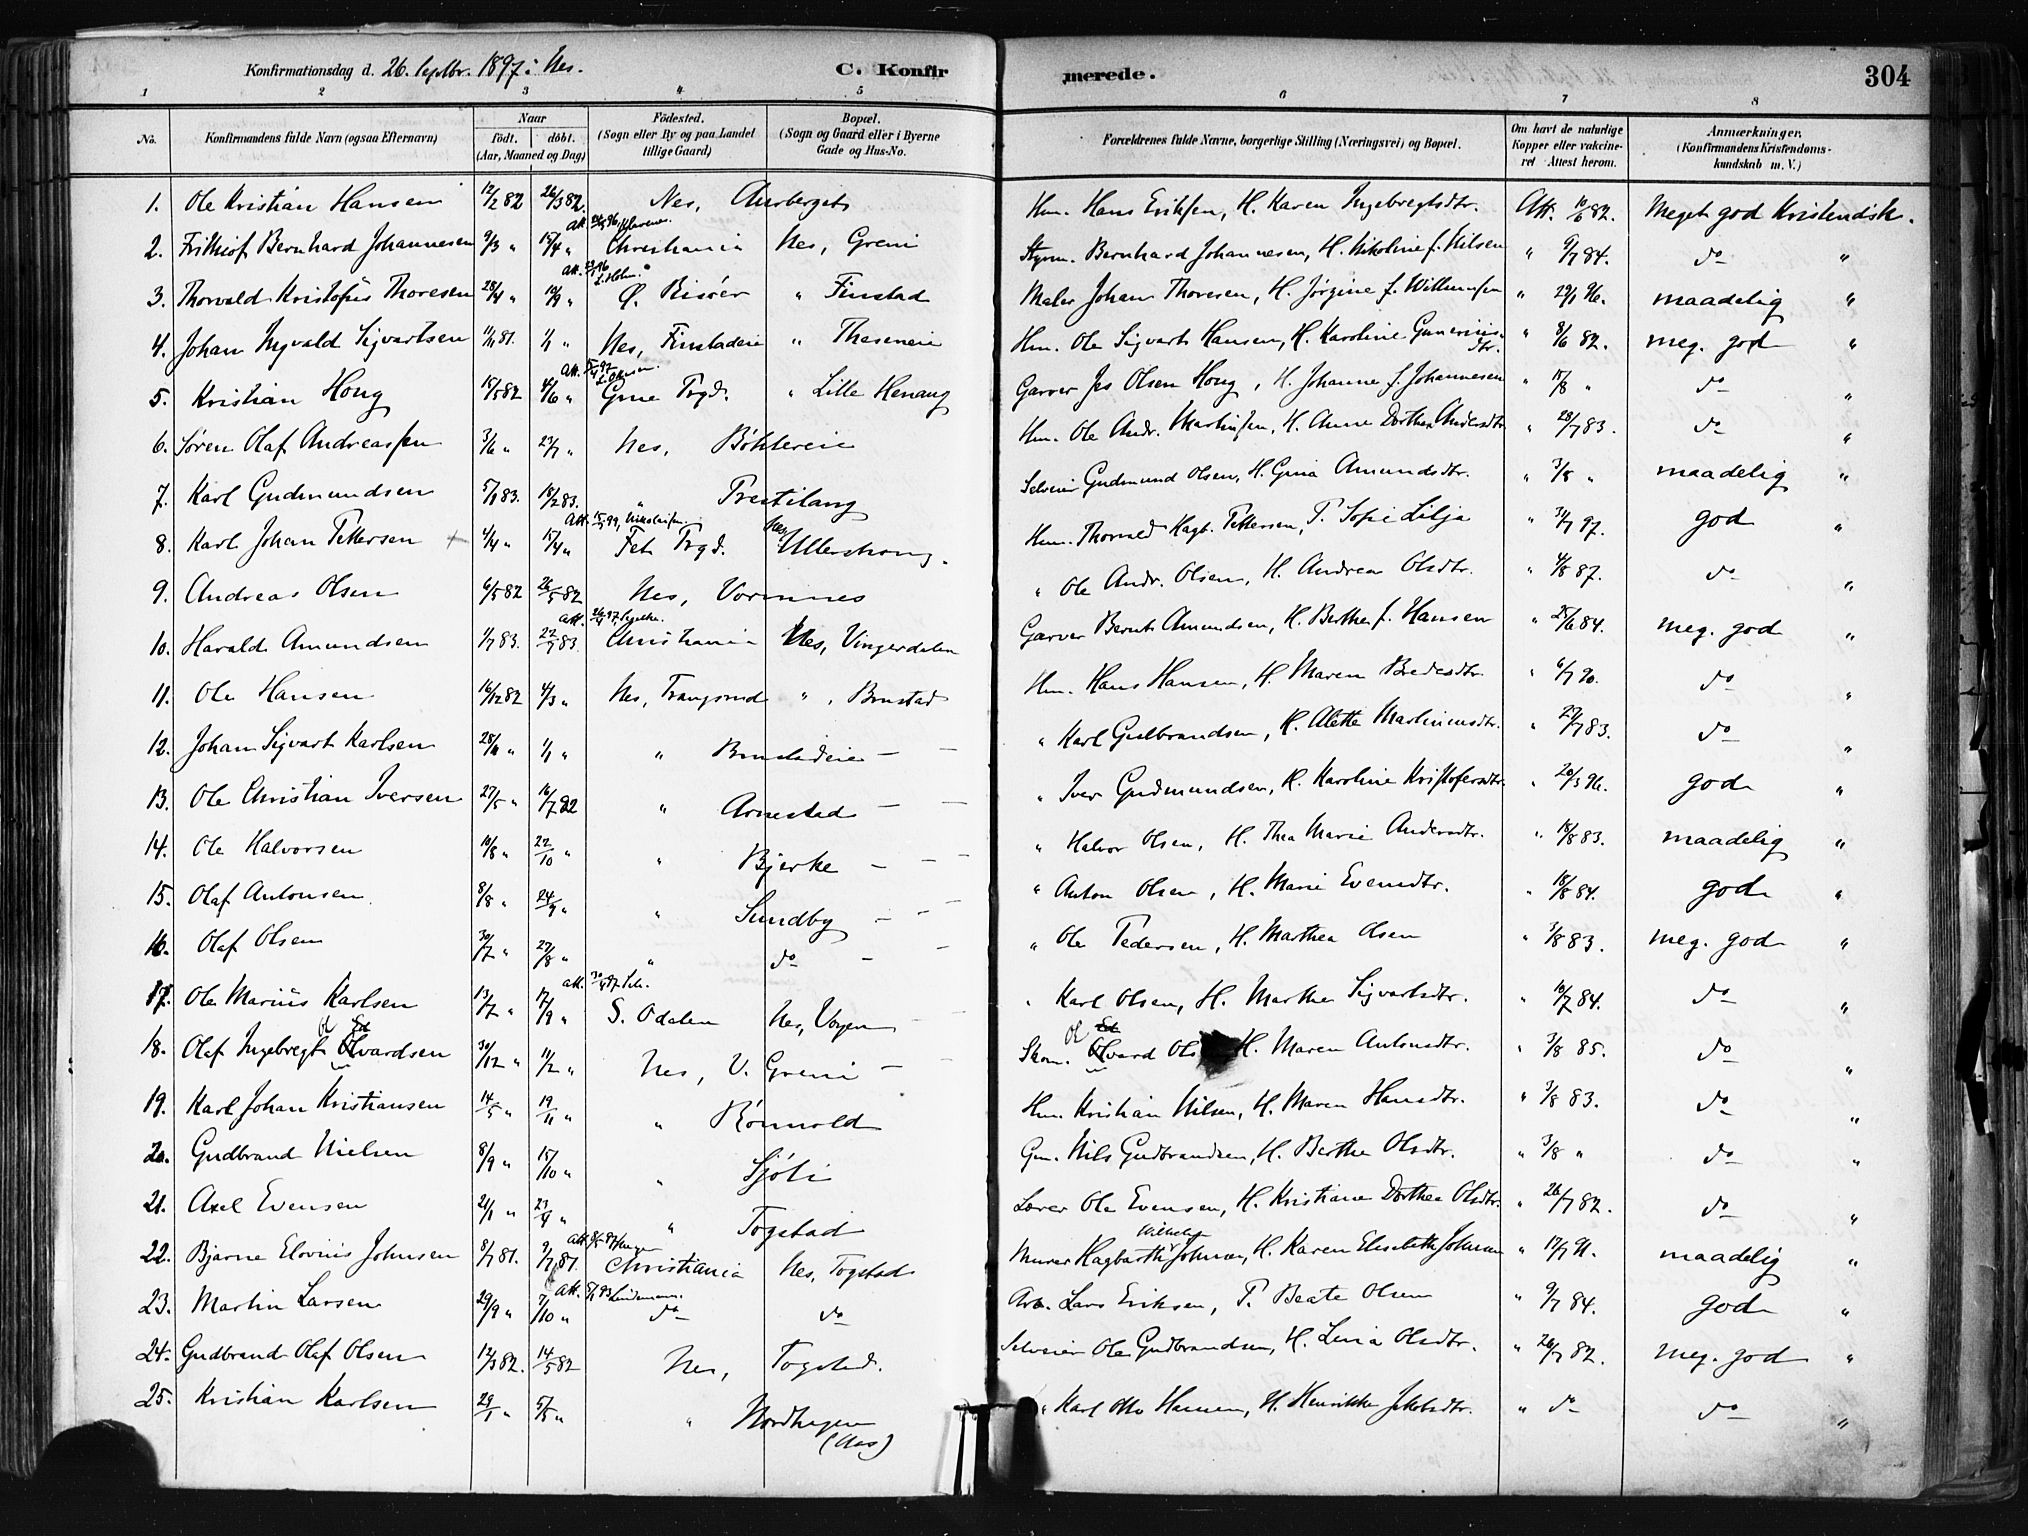 Konfirmationsdag d. 26. Septbr. 1897 i Nes. C. Konfirmerede. 304
1 2 3 4 5 6 7 8
No. Konfirmandens fulde Navn (ogsaa Efternavn) Naar Født. døbt. (Aar, Maaned og Dag) Fødested. (Sogn eller By og paa Landet tillige Gaard) Bopæl. (Sogn og Gaard eller i Byerne Gade og Hus-No. Forældrenes fulde Navne, borgerlige Stilling (Næringsvei) og Bopæl. Om havt de naturlige Kopper eller vakcineret Attest herom. Anmærkninger. (Konfirmandens Kristendomskundskab m. V.)
1. Ole Kristian Hansen 12/2 82 26/3 82. Nes, Aurberget Hm. Hans Eriksen, H. Karen Ingebregtsdtr. Att. 10/6 82. Meget god Kristendsk.
2. Frithiof Bernhard Johannesen 9/3 " 15/4 " Christiania Nes, Greni Styrm. Bernhard Johannesen, H. Nikoline f. Nilsen " 9/7 84. do "
3. Thorvald Kristofus Thoresen 28/4 " 10/9 " Ø. Risøer " Finstad Maler Johan Thoresen, H. Jørgine f. Willumsen " 29/1 96. maadelig "
4. Johan Ingvald Sigvartsen 11/11 81. 1/1 " Nes, Finstadeie " Theseneie Hm. Ole Sigvart Hansen, H. Karoline Gunerius dtr. " 8/6 82. meg. god "
5. Kristian Hong 15/5 82 4/6 " Grue Prgd. " Lille Henaug Garver Jes Olsen Hong, H. Johanne f. Johannesen " 15/8 " do "
6. Søren Olaf Andreassen 3/6 " 23/7 " Nes, Bøhlereie Hm. Ole Andr. Martinsen, H. Anne Dorthea Andersdtr. " 28/7 83. do "
7. Karl Gudmundsen 5/1 83. 18/2 83. " Præstilang Selveier Gudmund Olsen, H. Grina Amundsdtr. " 3/8 " maadelig "
8. Karl Johan Pettersen + 4/4 " 15/4 " Fet Prgd. Nes, Ullershaug. Hm. Thorvald Hagb. Pettersen, P. Sofie Lilja " 31/7 97. god "
9. Andreas Olsen 6/5 82 26/5 82 Nes, Vormnes " Ole Andr. Olsen, H. Andrea Olsdtr. " 4/8 87. do "
10. Harald Amundsen 1/7 83. 22/7 83. Christiania Nes, Vingerdalen Garver Bernt Amundsen, H. Berthe f. Hansen " 25/6 84. meg. god "
11. Ole Hansen 16/12 82 4/3 " Nes, Trangsrud " , Brustad Hm. Hans Hansen, H. Maren Bredesdtr. " 6/7 90. do "
12. Johan Sigvart Karlsen 28/11 " 1/1 " " Brustadeie — — " Karl Gulbrandsen, H. Alette Martinusdtr. " 27/7 83. do "
13. Ole Christian Iversen 27/5 " 16/7 82 " Arnestad — — " Iver Gudmundsen, H. Karoline Kristofersdtr. " 20/3 96. god "
14. Ole Halvorsen 10/8 " 22/10 " " Bjerke — — — " Halvor Olsen, H. Thea Marie Andersdtr. " 18/8 83. maadelig "
15. Olaf Antonsen 8/8 " 24/9 " " Sundby — — — " Anton Olsen, H. Marie Evensdtr. " 18/8 84. god "
16. Olaf Olsen 30/7 " 27/8 " " do — — " Ole Pedersen, H. Marthea Olsen " 3/8 83. meg. god "
17. Ole Marius Karlsen 13/7 " 17/9 " S. Odalen Nes, Vogen — — " Karl Olsen, H. Marthe Sigvartsdtr. " 10/7 84. do "
18. Olaf Ingebregt Olvardsen 30/12 " 11/2 " Nes, V. Greni — — Skom. Olvard Ols H. Maren Antonsdtr. " 3/8 85. do "
19. Karl Johan Kristiansen 14/5 " 19/11 " " Rønnold Hm. Kristian Nilsen, H. Maren Hansdtr. " 3/8 83. do "
20. Gudbrand Nielsen 8/9 " 15/10 " " Sjøli Gm. Nils Gudbrandsen, H. Berthe Olsdtr. " 3/8 " do "
21. Axel Evensen 21/1 " 23/4 " " Togstad Lærer Ole Evensen, H. Kristiane Dorthea Olsdtr. " 26/7 82. do "
22. Bjarne Elovius Johnsen 8/7 81. 9/7 81. Christiania Nes, Togstad Murer Hagbarth Wilhelm Johnsen, H. Karen Elisebeth Johnsen " 17/9 91. maadelig "
23. Martin Larsen 29/9 " 7/10 " do do Arb. Lars Eriksen, P. Beate Olsen " 9/7 84. god "
24. Gudbrand Olaf Olsen 12/3 82. 14/5 82 Nes, Togstad. Selveier Ole Gudbrandsen, H. Lina Olsdtr. " 26/7 82. meg. god "
25. Kristian Karlsen 29/1 " 5/5 " " Nordhagen (Aas) " Karl Otto Hansen, H. Henrikke Jakobsdtr. " do do "